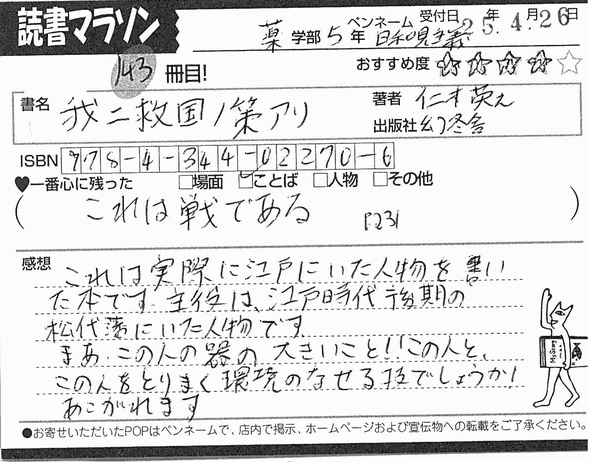 読書マラソン
薬 学部 5 年 ペンネーム 日和見主義 受付日 25年 4月 26日
143 冊目!
おすすめ度 ★★★★☆
書名 我ニ救国ノ策アリ
著者 仁木英之
出版社 幻冬舎
ISBN 978-4-344-02270-6
♥一番心に残った □場面 □ことば □人物 □その他
( これは戦である P231 )
感想
これは実際に江戸にいた人物を書い
た本です。主役は、江戸時代後期の
松代藩にいた人物です
まあ、この人の器の大きいこと!!この人と、
この人をとりまく環境のなせる技でしょうか!
あこがれます
●お寄せいただいたPOPはペンネームで、店内で掲示、ホームページおよび宣伝物への転載をご了承ください。